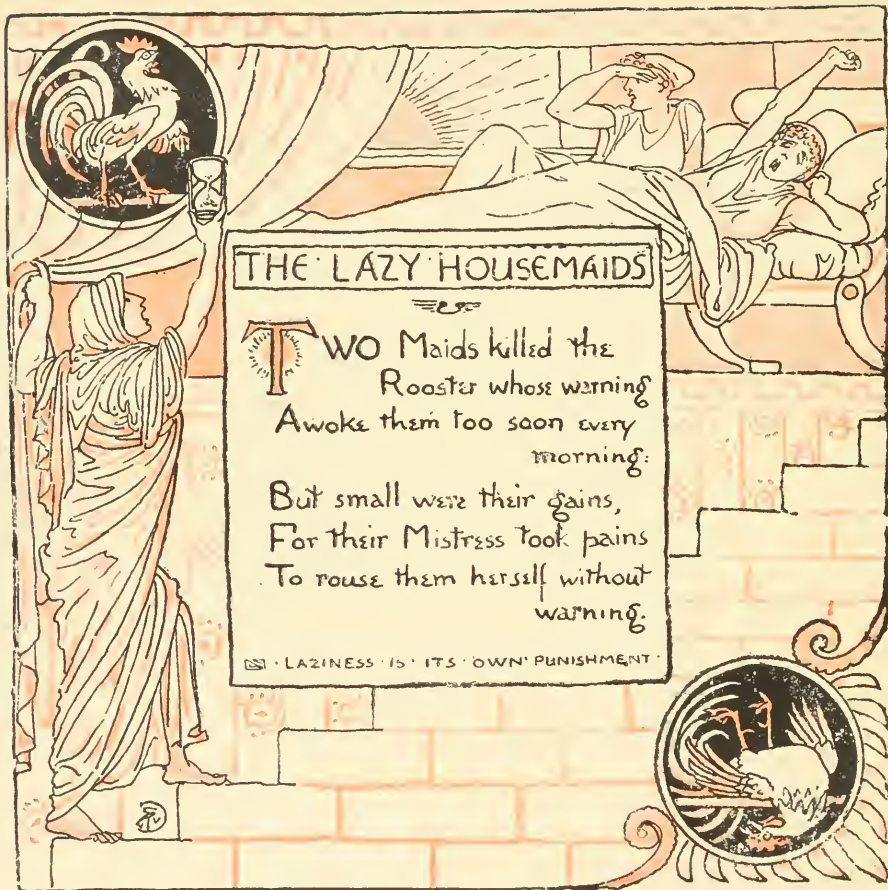 THE · LAZY · HOUSEMAIDS
TWO Maids killed the
Rooster whose warning
Awoke them too soon every
morning:
But small were their gains,
For their Mistress took pains
To rouse them herself without
warning.
· LAZINESS · IS · ITS · OWN · PUNISHMENT ·